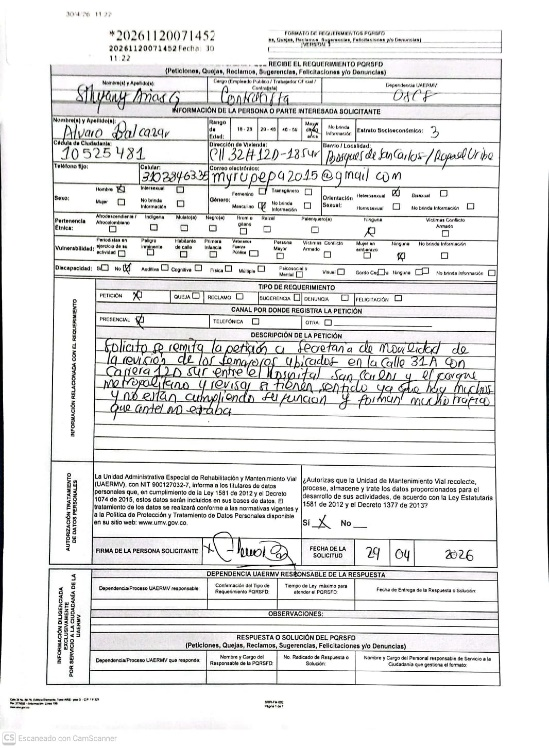 30/4/26 11:22
*20261120071452
20261120071452 Fecha: 30
11:22
FORMATO DE REQUERIMIENTOS PQRSFD
VERSIÓN 3
RECIBE EL REQUERIMIENTO PQRSFD
(Peticiones, Quejas, Reclamos, Sugerencias, Felicitaciones y/o Denuncias)
Nombre(s) y Apellido(s):
Cargo (Empleado Público / Trabajador Oficial / Contratista)
Dependencia UAERMV
Arias G
Contratista
INFORMACIÓN DE LA PERSONA O PARTE INTERESADA SOLICITANTE
Nombre(s) y Apellido(s):
Alvaro Balcazar
Rango de Edad:
18 - 28
No brinda Información
Estrato Socioeconómico:
3
Cédula de Ciudadanía:
10525481
Dirección
Cll 32A 12D-18 sur
Barrio / Localidad:
Bosques de San Carlos / Rafael Uribe
Teléfono fijo:
Celular:
Correo electrónico:
myrupepa2015@gmail.com
Sexo:
Hombre X
Intersexual
Mujer
No brinda Información
Género:
Femenino
Transgénero
Masculino X
No brinda Información
Orientación Sexual:
Heterosexual X
Bisexual
Homosexual
No brinda Información
Pertenencia Étnica:
Afrodescendiente / Afrocolombiano
Indígena
Mulato(a)
Negro(a)
Rrom o gitano
Raizal
Palenquero(a)
Ninguna
X
Víctimas Conflicto Armado
Vulnerabilidad:
Periodistas en ejercicio de su actividad
Peligro inminente
Habitante de calle
Primera Infancia
Veterano Fuerza Pública
Persona Mayor
Víctimas Conflicto Armado
Mujer en embarazo
Ninguna
X
No brinda Información
Discapacidad:
Si
No X
Auditiva
Cognitiva
Física
Múltiple
Psicosocial o Mental
Visual
Sordo Ceguera
Ninguna
No brinda Información
INFORMACIÓN RELACIONADA CON EL REQUERIMIENTO
TIPO DE REQUERIMIENTO
PETICIÓN X
QUEJA
RECLAMO
SUGERENCIA
DENUNCIA
FELICITACIÓN
CANAL POR DONDE REGISTRA LA PETICIÓN
PRESENCIAL X
TELEFÓNICA
OTRA
DESCRIPCIÓN DE LA PETICIÓN
Solicito se remita la petición a Secretaria de Movilidad de
la revisión de los semaforos ubicados en la calle 31A con
Carrera 12D sur entre el Hospital San Carlos y el parque
metropolitano y revisar si tienen sentido ya que hay muchos
y no están cumpliendo su función y forman mucho trafico
que antes no estaba
AUTORIZACIÓN TRATAMIENTO DE DATOS PERSONALES
La Unidad Administrativa Especial de Rehabilitación y Mantenimiento Vial
(UAERMV), con NIT 900127032-7, informa a los titulares de datos
personales que, en cumplimiento de la Ley 1581 de 2012 y el Decreto
1074 de 2015, estos datos serán incluidos en sus bases de datos. El
tratamiento de los datos se realizará conforme a las normativas vigentes y
a la Política de Protección y Tratamiento de Datos Personales disponible
en su sitio web: www.umv.gov.co.
¿Autorizas que la Unidad de Mantenimiento Vial recolecte,
procese, almacene y trate los datos proporcionados para el
desarrollo de sus actividades, de acuerdo con la Ley Estatutaria
1581 de 2012 y el Decreto 1377 de 2013?
Si X No
FIRMA DE LA PERSONA SOLICITANTE
FECHA DE LA SOLICITUD
29 04 2026
INFORMACIÓN DILIGENCIADA EXCLUSIVAMENTE POR SERVICIO A LA CIUDADANÍA DE LA UAERMV
DEPENDENCIA UAERMV RESPONSABLE DE LA RESPUESTA
Dependencia/Proceso UAERMV responsable
Confirmación del Tipo de Requerimiento PQRSFD:
Tiempo de Ley máximo para atender el PQRSFD
Fecha de Entrega de la Respuesta o Solución:
OBSERVACIONES:
RESPUESTA O SOLUCIÓN DEL PQRSFD
(Peticiones, Quejas, Reclamos, Sugerencias, Felicitaciones y/o Denuncias)
Dependencia/Proceso UAERMV que responde:
Nombre y Cargo del Responsable de la PQRSFD
No. Radicado de Respuesta o Solución:
Nombre y Cargo del Personal responsable de Servicio a la Ciudadanía que gestiona el formato:
CS Escaneado con CamScanner